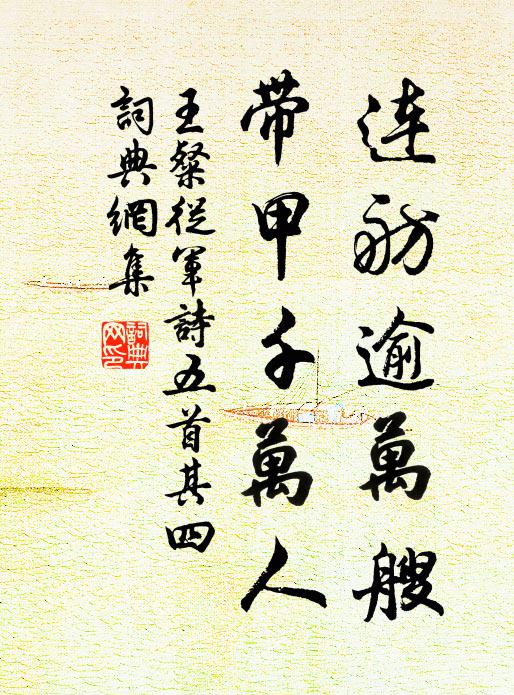 連舫逾萬艘
帶甲千萬人
王粲從軍詩五首其四
詞典網集
詞典網印